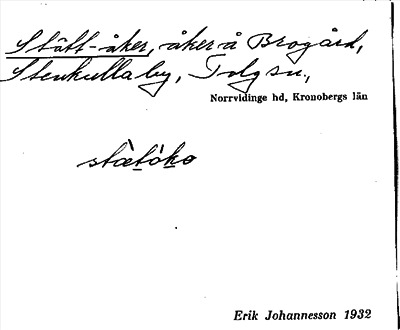 Stätt-åker, åker å Brogård,
Stenkulla by, Tolg sn.,
Norrvidinge hd, Kronobergs län
stætåkɷ
Erik Johannesson 1932